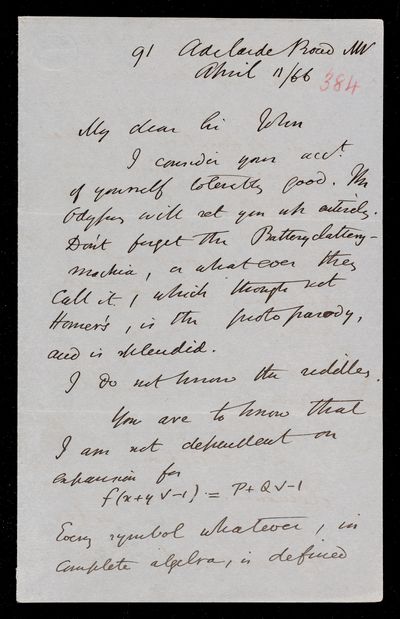 91 Adelaide Road NW
April 11/66
384
My dear Sir John
I consider your acct.
of yourself tolerably good. The
Odyssey will set you up entirely.
Don't forget the Battery clattery-
machia, or whatever they
call it, which though not
Homer's, is the proto parody,
and is splendid.
I do not know the riddles.
You are to know that
I am not dependent on
expansion for
f(x+y√-1) = P+Q√-1
Every symbol whatever, in
complete algebra, is defined